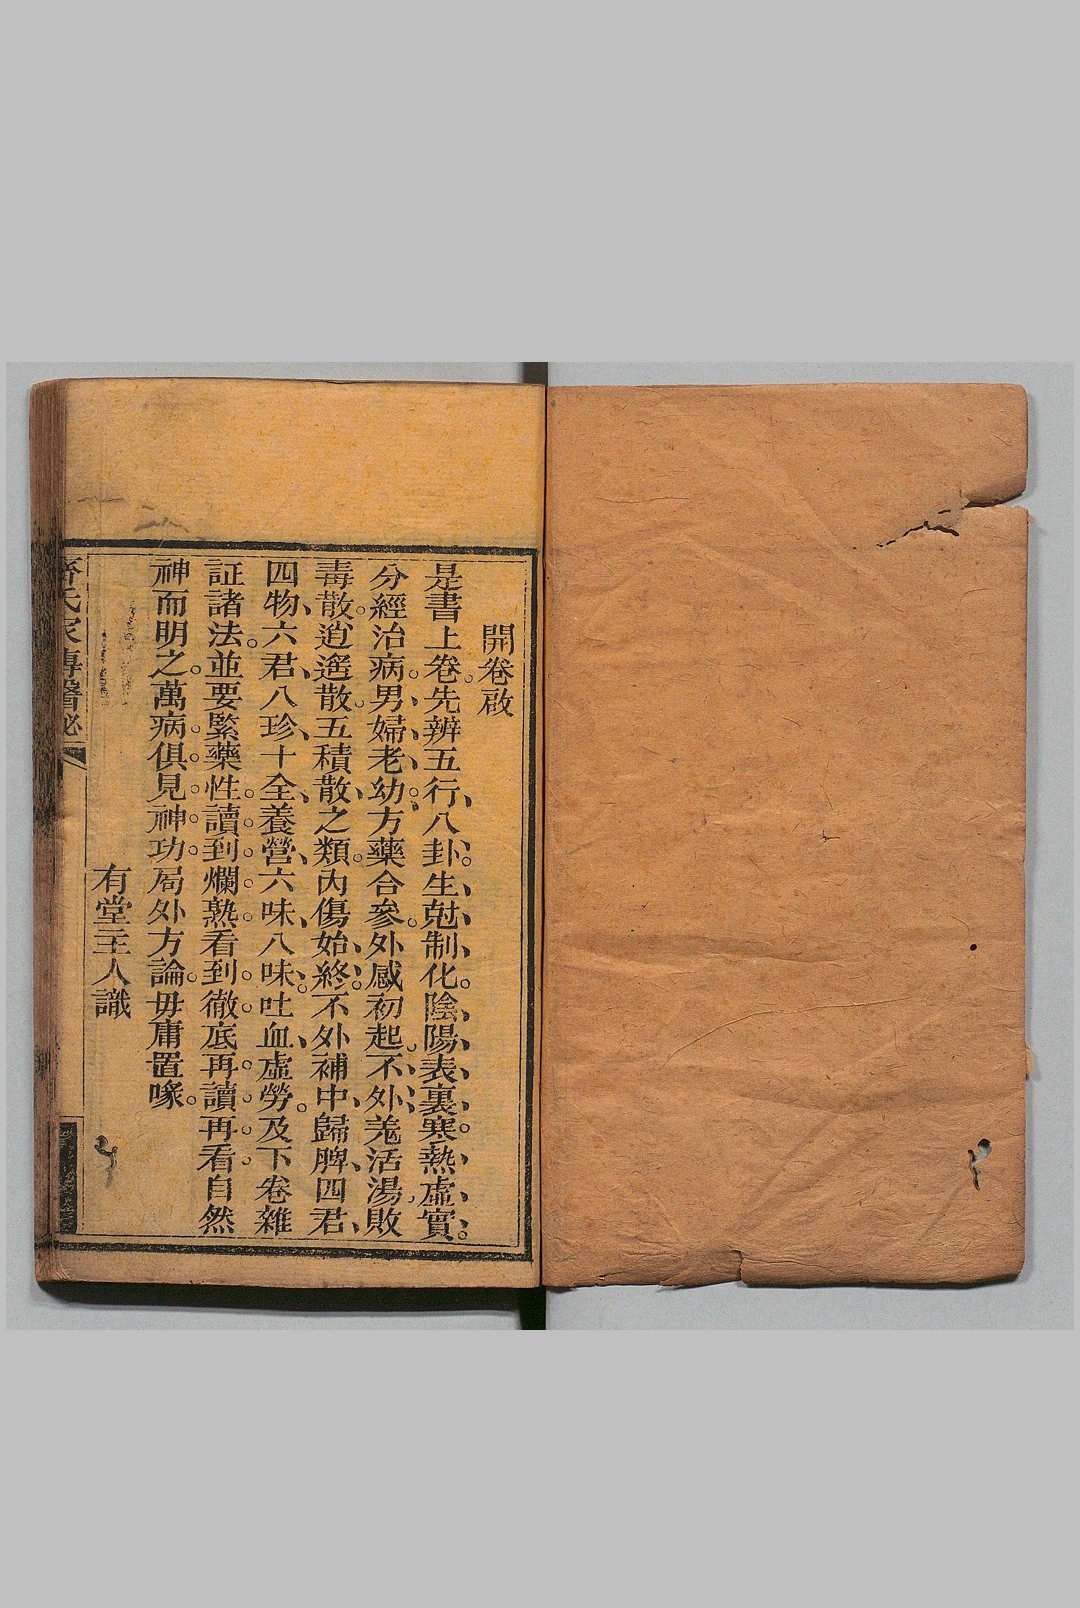 開卷啟
是書上卷先辨五行八卦生尅制化陰陽表裏寒熱虛實
分經治病男婦老幼方藥合參外感初起不外羗活湯敗
毒散逍遙散五積散之類內傷始終不外補中歸脾四君
四物六君八珍十全養營六味八味吐血虛勞及下卷雜
証諸法並要緊藥性讀到爛熟看到徹底再讀再看自然
神而明之萬病俱見神功局外方論毋庸置喙
有堂主人識
齊氏家傳醫秘